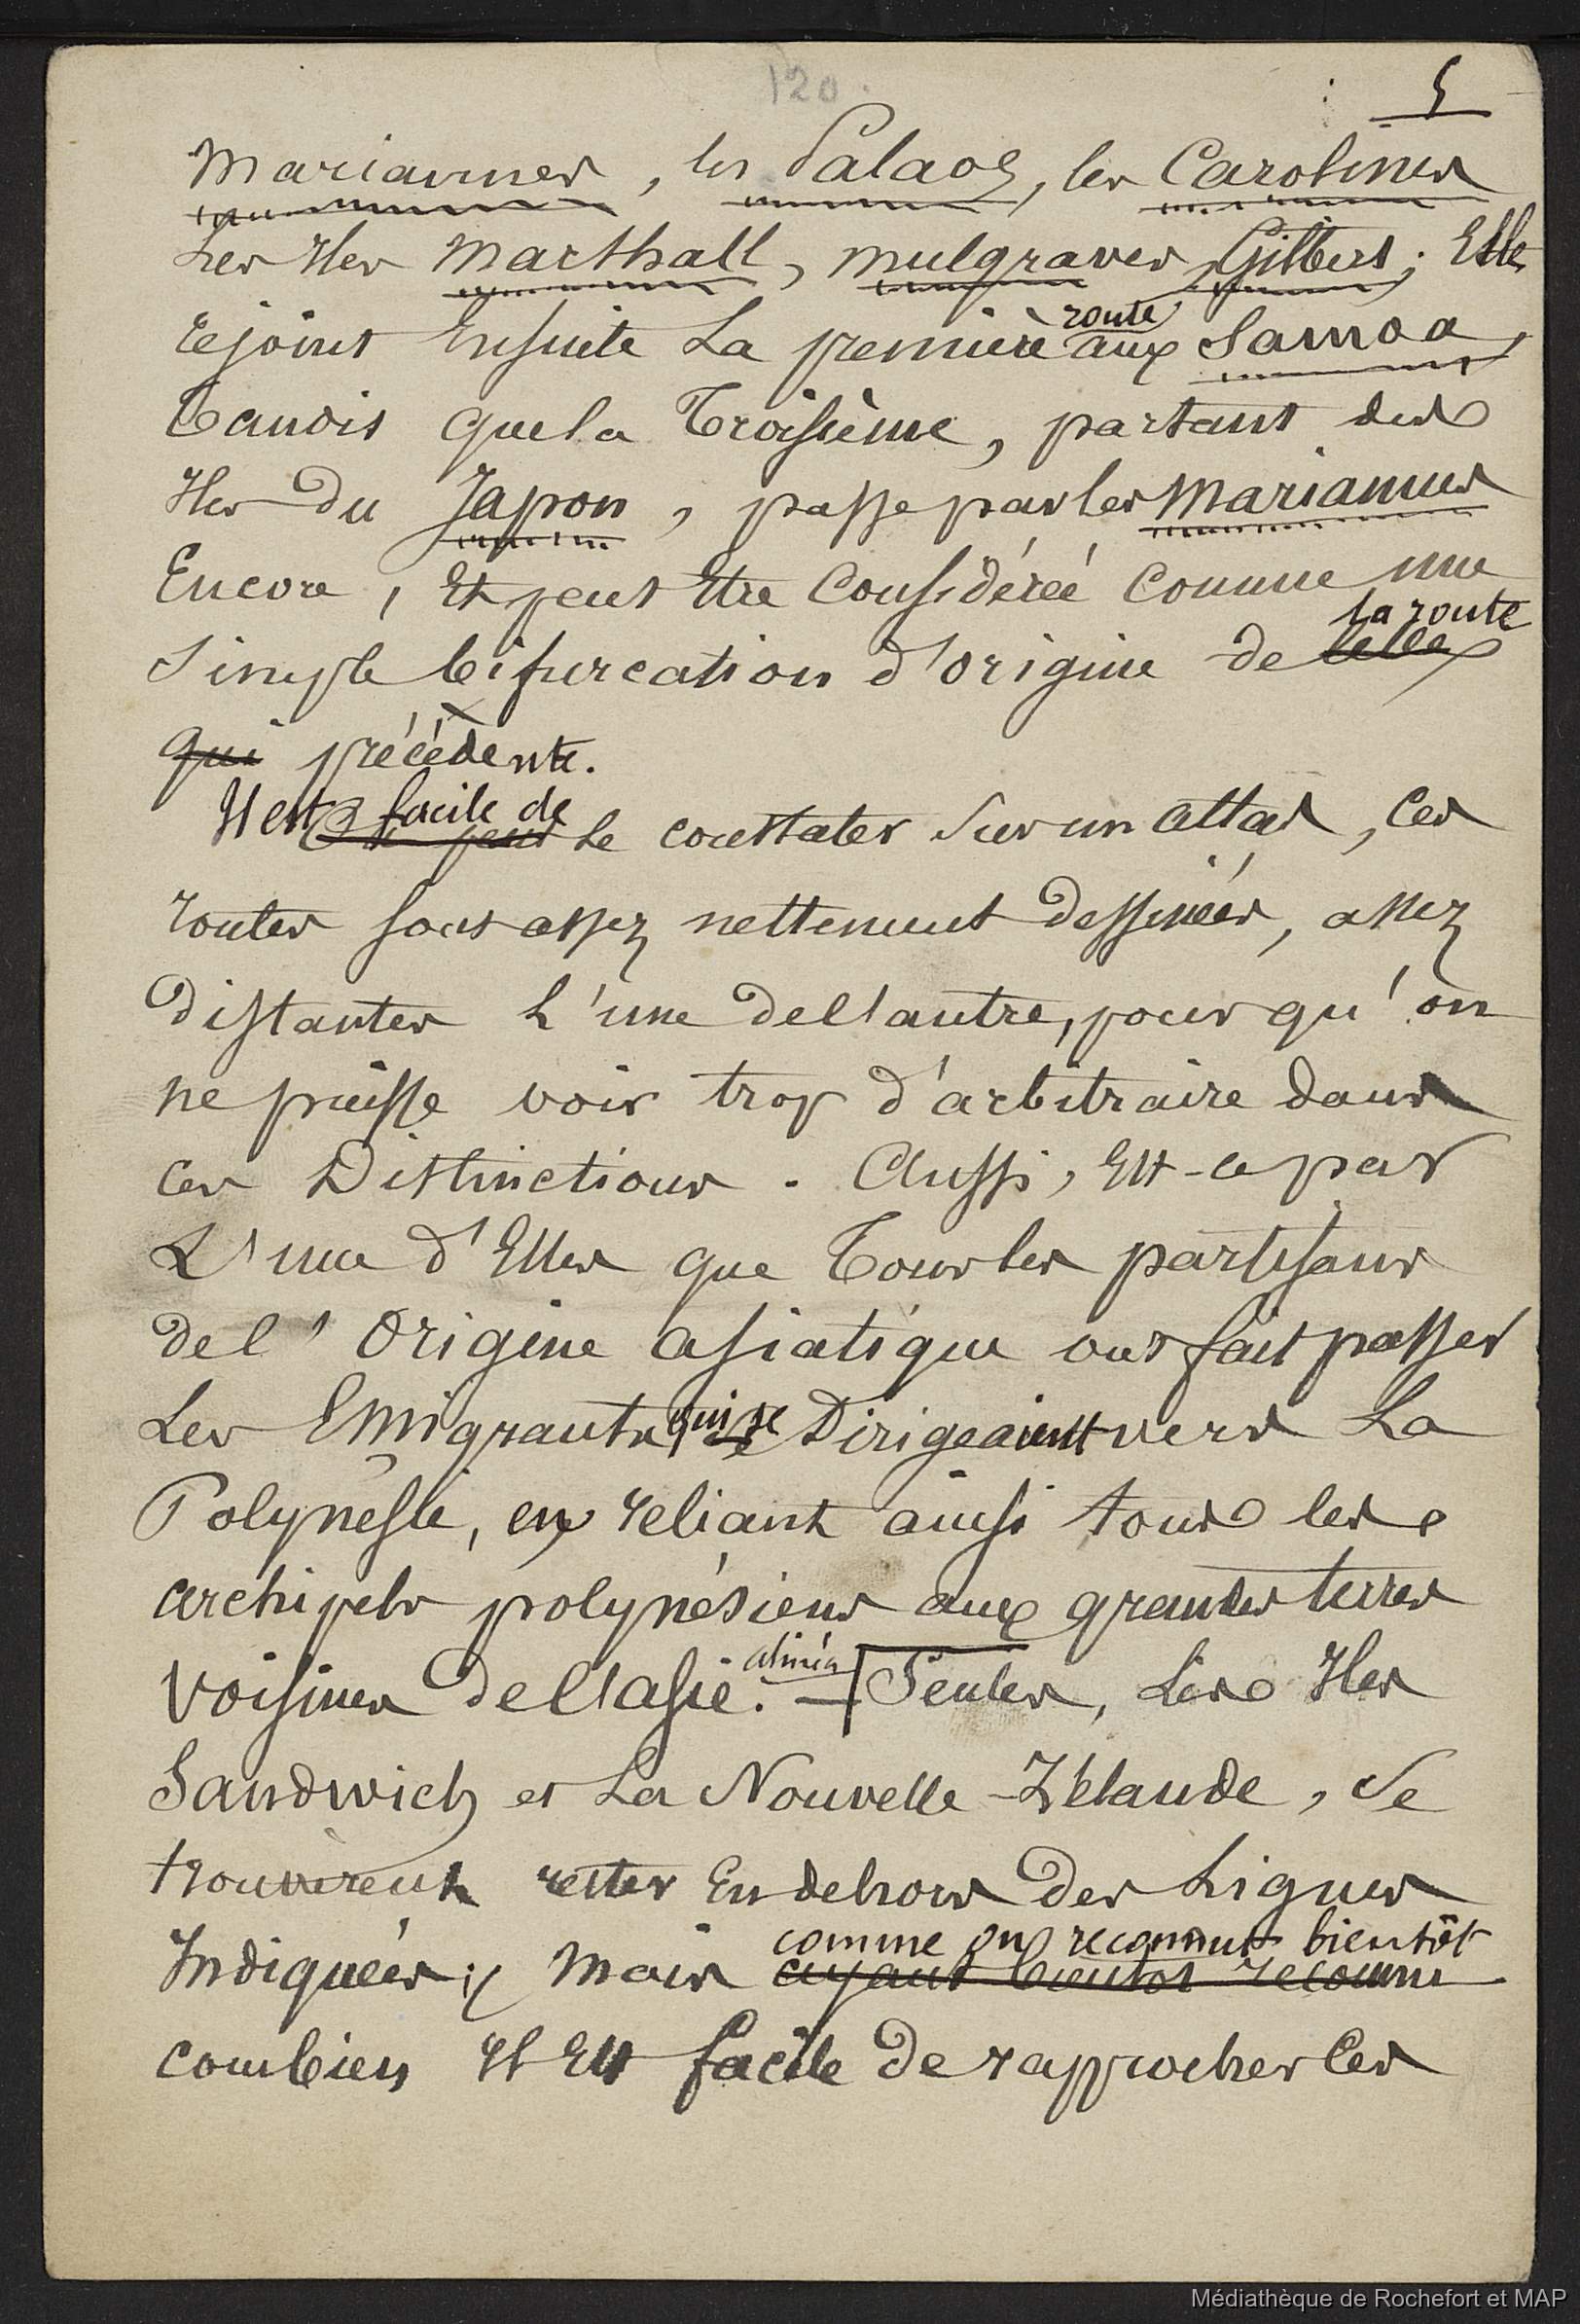 120.
5
Mariannes, les Palaos, les Carolines
Les Iles Marshall, Mulgraves, Gilbert; Elle
route
rejoint Ensuite La première aux Samoa,
Tandis que la Troisième, partant des
Iles du Japon, passe par les Mariannes
Encore, Et peut Etre Considéreé Comme une
la route
Simple bifurcation d'origine de celle
qui précédente.
Il est facile de
On peut le constater Sur un atlas, Ces
routes sont assez nettement dessinées, assez
Distantes L'une de l'autre, pour qu'on
ne puisse voir trop d'arbitraire dans
ces Distinctions. Aussi, Est-ce par
L'une d'Elles que Tous les partisans
de l'Origine asiatique ont fait passer
Les Emigrants qui se Dirigeaient vers La
Polynésie, en reliant ainsi tous les
archipels polynésiens aux grandes terres
alinéa
Voisines de l'asie. — [Seules, Les Iles
Sandwich et La Nouvelle-Zélande, Se
trouvèrent rester En dehors Des Lignes
comme on reconnut bientôt
Indiquées; Mais ayant bientôt reconnu
combien Il Est facile De rapprocher Ces
Médiathèque de Rochefort et MAP